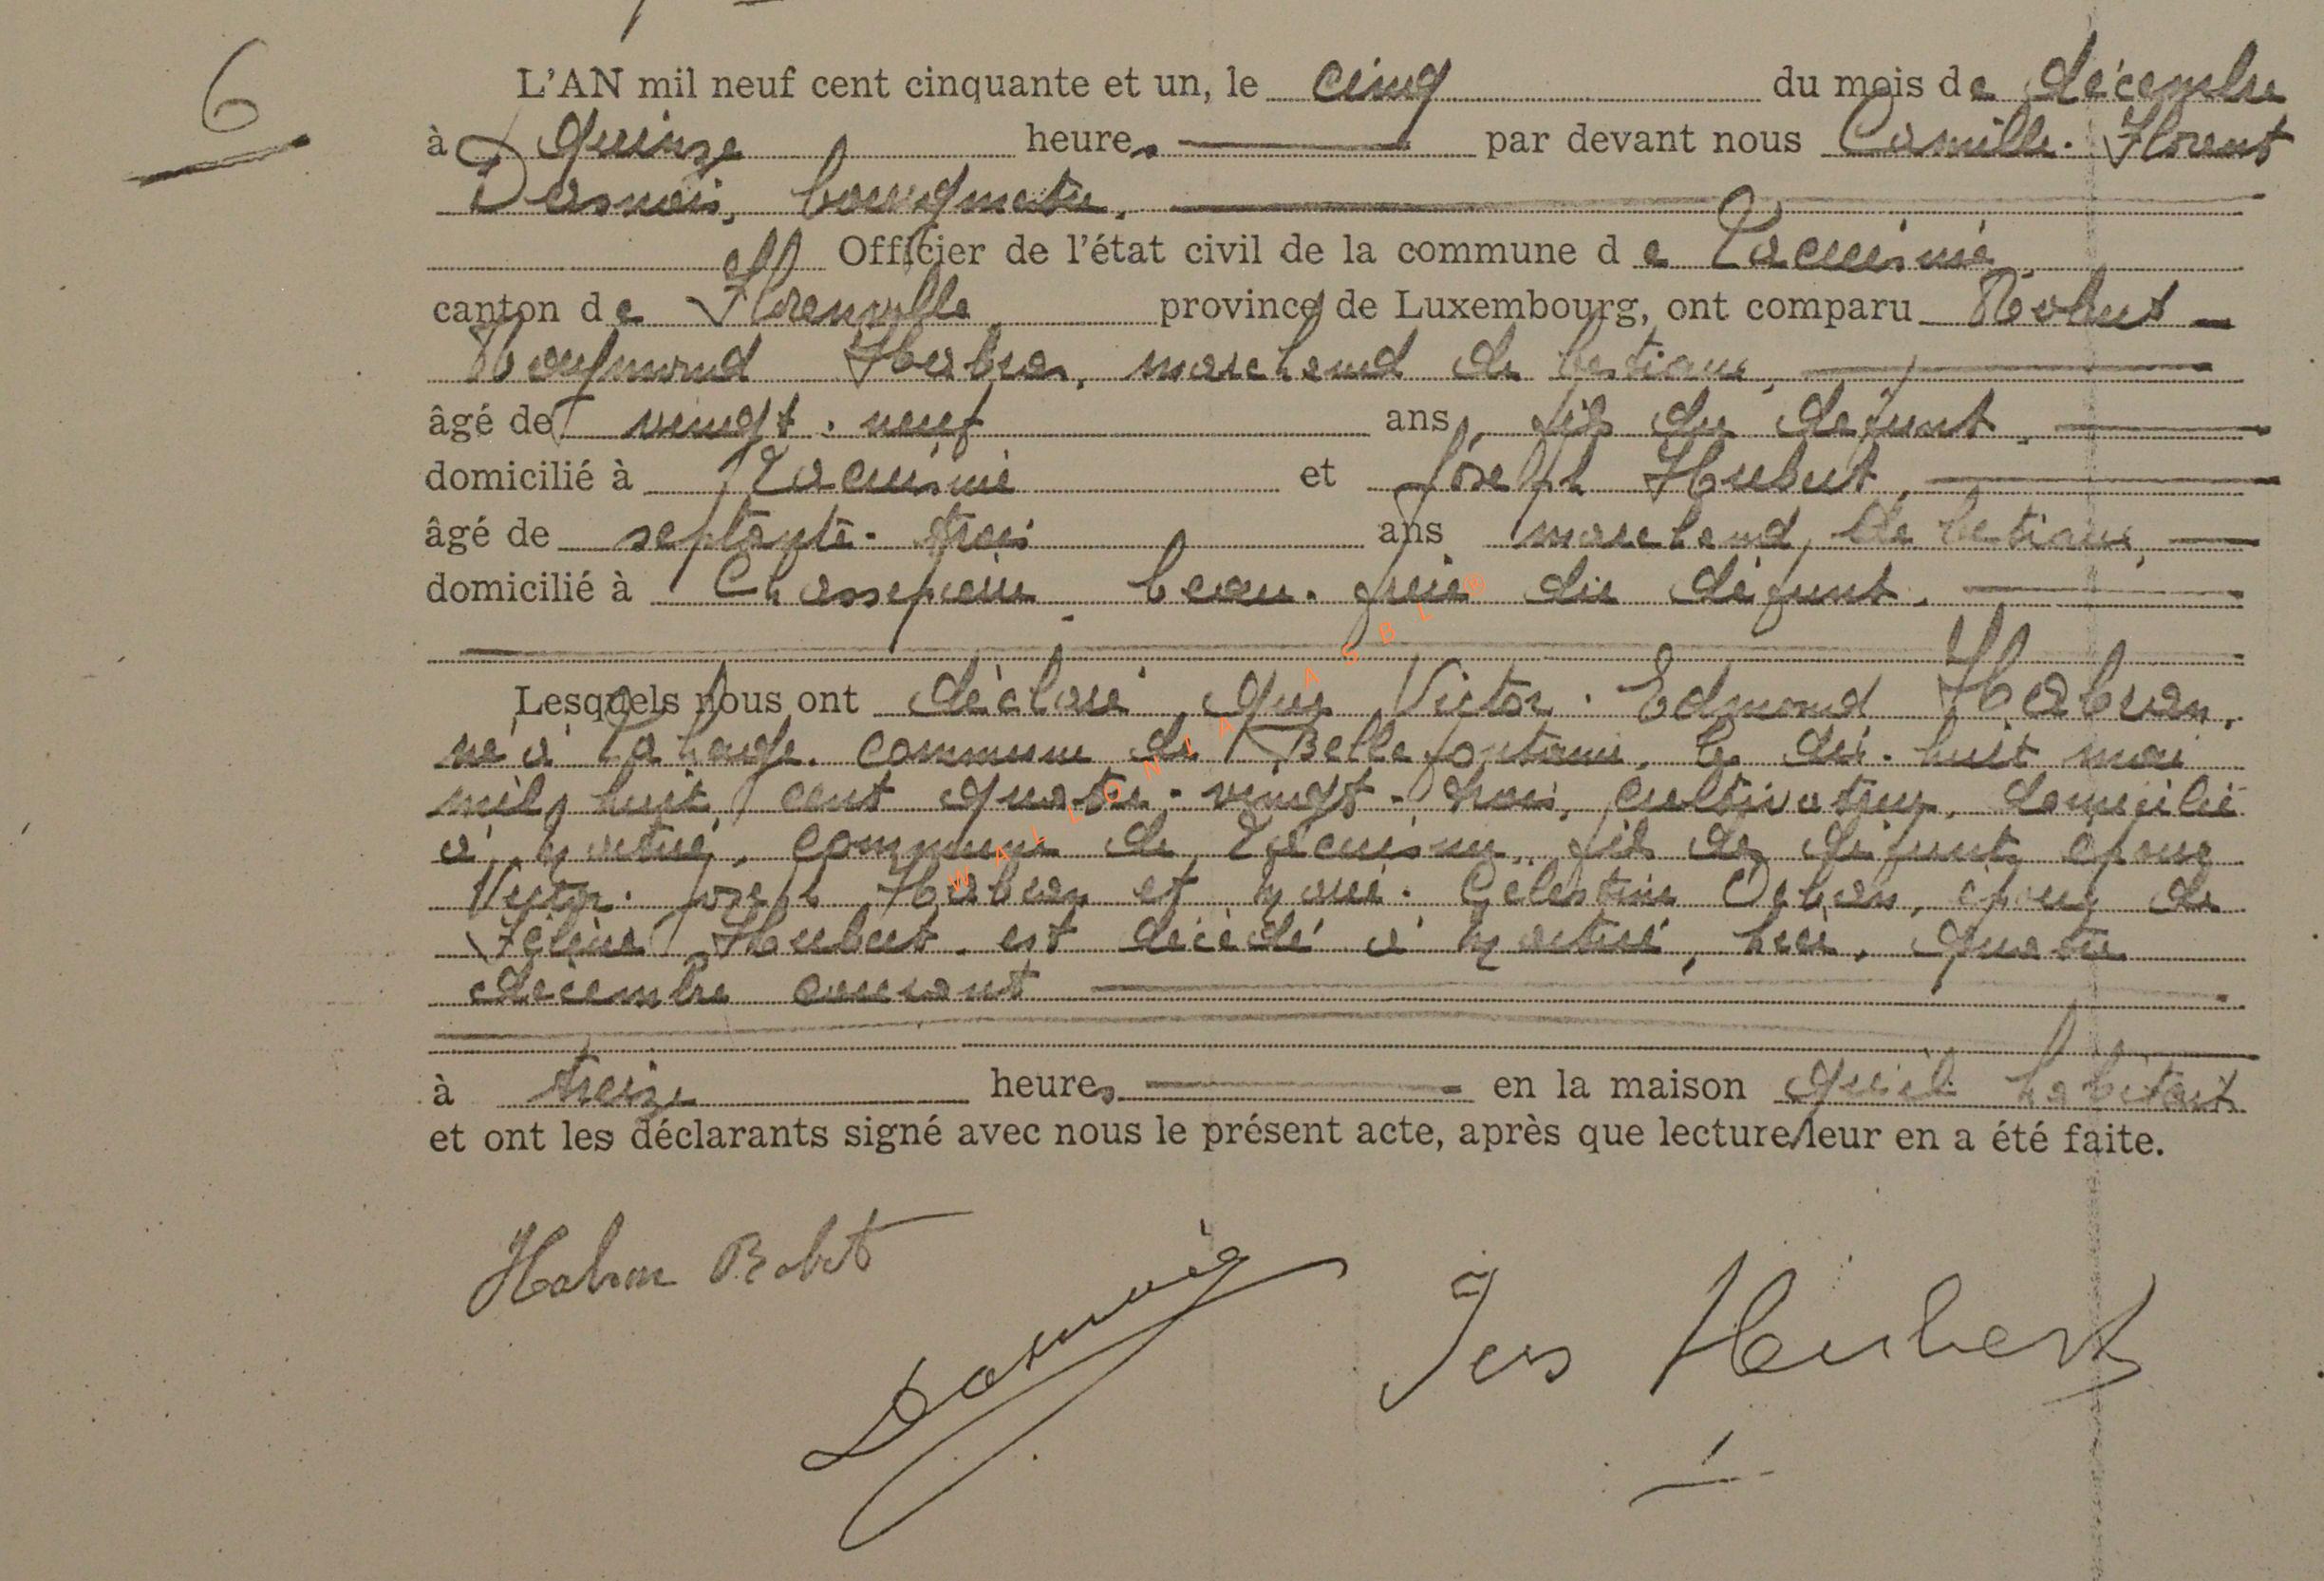 6
L'AN mil neuf cent cinquante et un, le cinq du mois de décembre
à quinze heures par devant nous Camille-Florent
Dasnois, bourgmestre,
Officier de l'état civil de la commune de Lacuisine
canton de Florenville province de Luxembourg, ont comparu Robert
Raymond Habran, marchand de bestiaux,
âgé de vingt-neuf ans, fils du défunt,
domicilié à Lacuisine et Joseph Hubert,
âgé de septante-trois ans marchand de bestiaux,
domicilié à Chassepierre, beau-frère du défunt.
Lesquels nous ont déclaré que Victor-Edmond Habran,
né à Lahage, commune de Bellefontaine, le dix-huit mai
mil huit cent quatre-vingt-trois, cultivateur, domicilié
à Martué, commune de Lacuisine, fils des défunts époux
Victor-Joseph Habran et Marie-Célestine, époux de
Hubert, est décédé à Martué, hier, quatre
décembre courant
à treize heures en la maison qu'il habitait
et ont les déclarants signé avec nous le présent acte, après que lecture leur en a été faite.
Habran Robert
Dasnois
Jos Hubert
WALLONIA ASBL ®